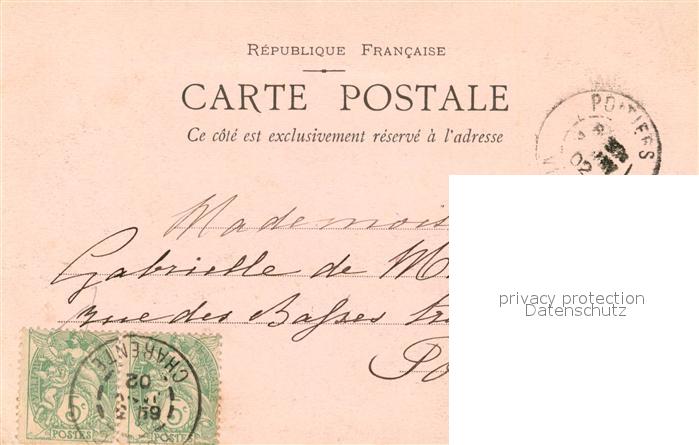 RÉPUBLIQUE FRANÇAISE
CARTE POSTALE
Ce côté est exclusivement réservé à l'adresse
POITIERS
02
Mademois
Gabrielle de M
rue des Basses tr
Po
privacy protection
Datenschutz
5c 5c
POSTES POSTES
CHARENTE
02